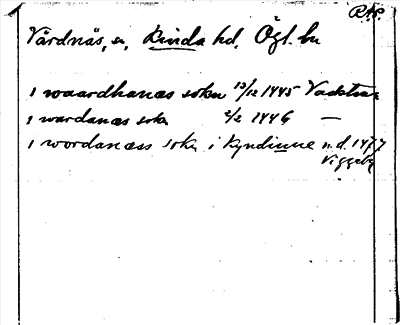 RAP.
Vårdnäs, sn, Kinda hd. Ögl. ln
i waardhanæs sokn 13/12 1445 Vadstena
i wardanæs sokn 2/2 1446 —
i wordanæss sokn i Kyndinne u.d. 1477
Viggeby